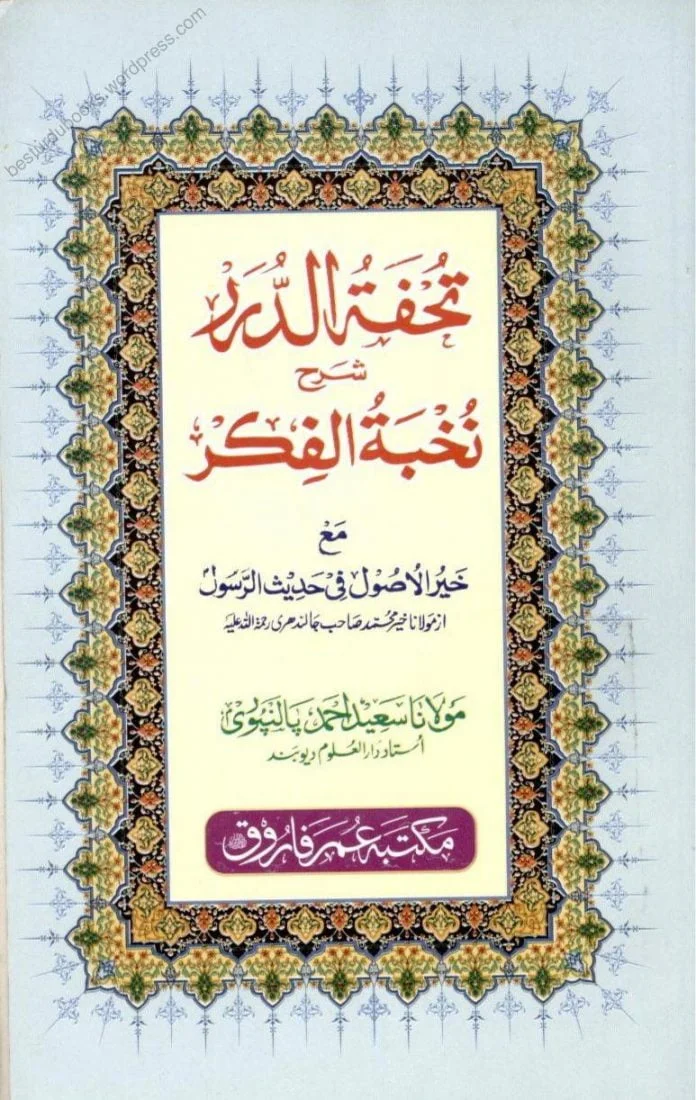 besturdubooks.wordpress.com
تُحْفَۃُ الدُّرَر
شَرح
نُخْبَۃُ الْفِکَر
مَعْ
خَیْرُالْاُصُوْل فِیْ حَدِیْثِ الرَّسُوْل
از مولانا خیر محمّد صاحب جالندھری رحمۃ اللہ علیہ
مَولانا سَعِید احمد پالنپوری
اُستاد دارالعلوم دیوبند
مکتبہ عُمر فاروق